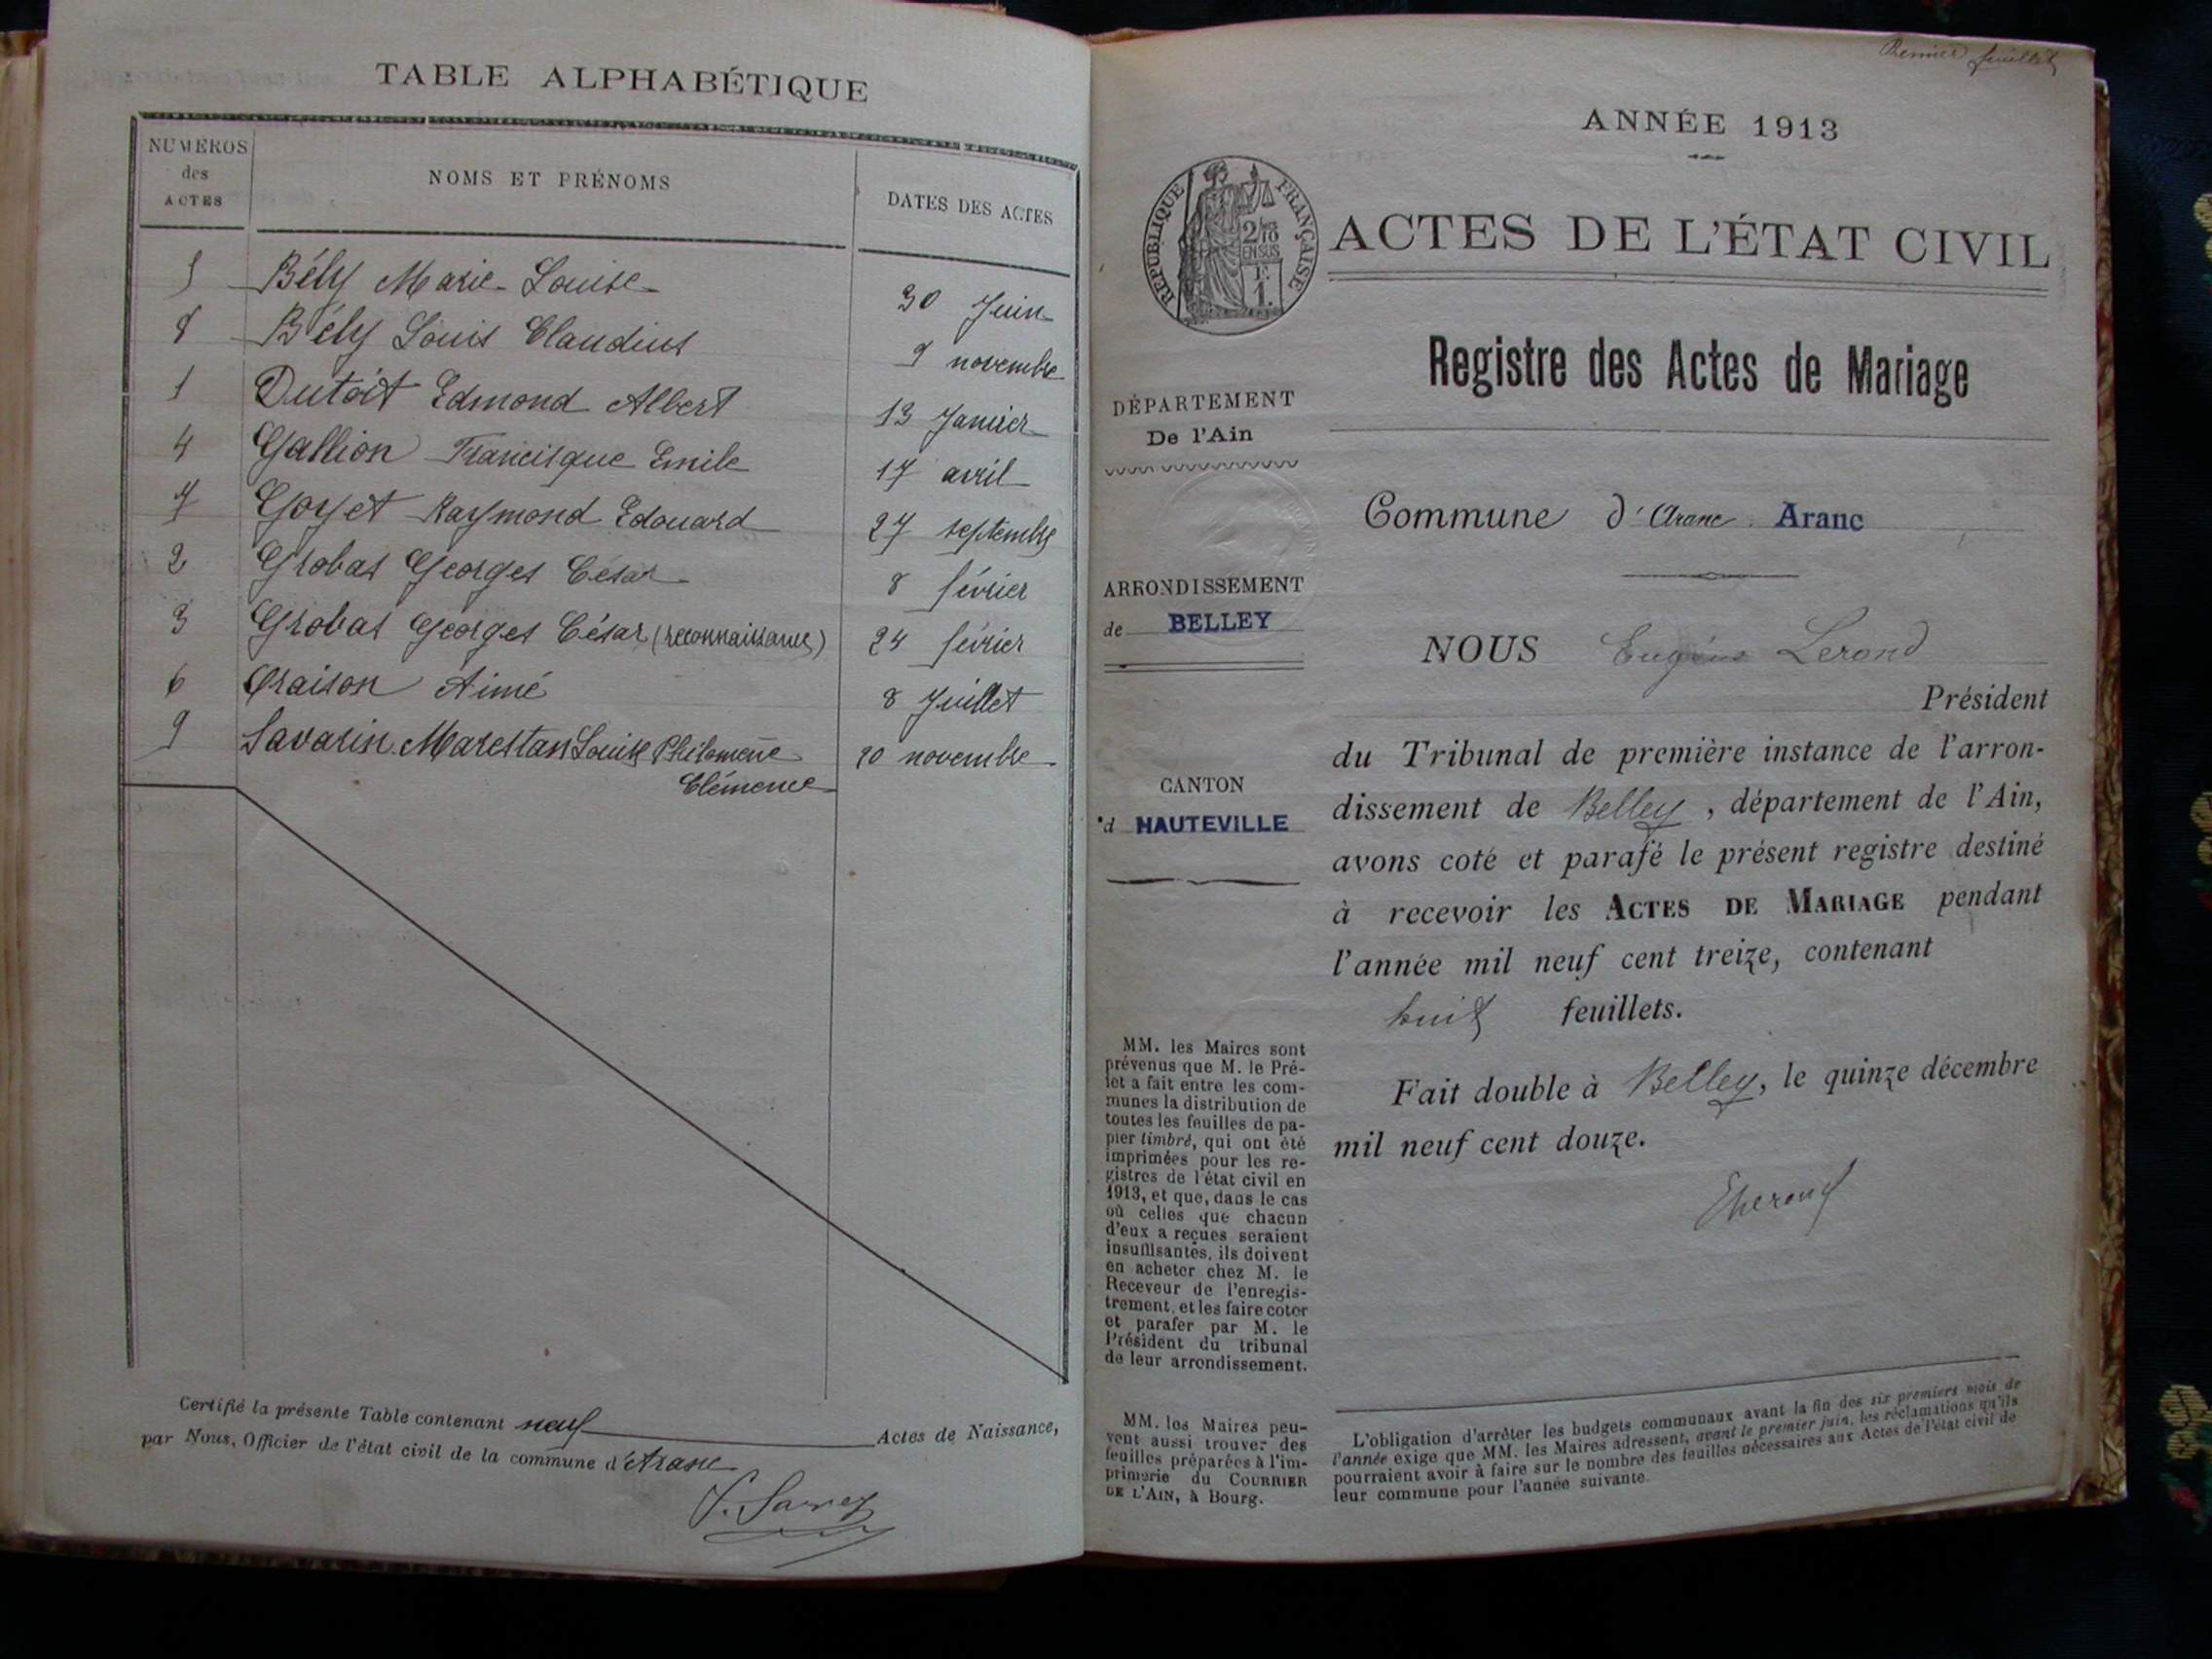 TABLE ALPHABÉTIQUE
NUMÉROS
des
ACTES
NOMS ET PRÉNOMS
DATES DES ACTES
5 Bély Marie-Louise 30 Juin
8 Bély Louis Claudius 9 novembre
1 Dutoit Edmond Albert 13 Janvier
4 Gallion Francisque Emile 17 avril
7 Goyet Raymond Edouard 27 septembre
2 Grobas Georges César 8 février
3 Grobas Georges César (reconnaissance) 24 février
6 Oraison Aimé 8 Juillet
9 Savarin Marestan Louise Philomène 20 novembre
Clémence
Certifié la présente Table contenant neuf Actes de Naissance,
par Nous, Officier de l'état civil de la commune d'Aranc
Premier feuillet
ANNÉE 1913
RÉPUBLIQUE FRANÇAISE
2/10
EN SUS
1 F.
ACTES DE L'ÉTAT CIVIL
Registre des Actes de Mariage
DÉPARTEMENT
De l'Ain
Commune d'Aranc Aranc
ARRONDISSEMENT
de BELLEY
NOUS Eugène Lerond
Président
du Tribunal de première instance de l'arron-
dissement de Belley, département de l'Ain,
avons coté et parafé le présent registre destiné
à recevoir les ACTES DE MARIAGE pendant
l'année mil neuf cent treize, contenant
huit feuillets.
Fait double à Belley, le quinze décembre
mil neuf cent douze.
CANTON
d HAUTEVILLE
MM. les Maires sont
prévenus que M. le Pré-
fet a fait entre les com-
munes la distribution de
toutes les feuilles de pa-
pier timbré, qui ont été
imprimées pour les re-
gistres de l'état civil en
1913, et que, dans le cas
où celles que chacun
d'eux a reçues seraient
insuffisantes, ils doivent
en acheter chez M. le
Receveur de l'enregis-
trement, et les faire coter
et parafer par M. le
Président du tribunal
de leur arrondissement.
MM. les Maires peu-
vent aussi trouver des
feuilles préparées à l'im-
primerie du COURRIER
DE L'AIN, à Bourg.
L'obligation d'arrêter les budgets communaux avant la fin des six premiers mois de
l'année exige que MM. les Maires adressent, avant le premier juin, les réclamations qu'ils
pourraient avoir à faire sur le nombre des feuilles nécessaires aux Actes de l'état civil de
leur commune pour l'année suivante.